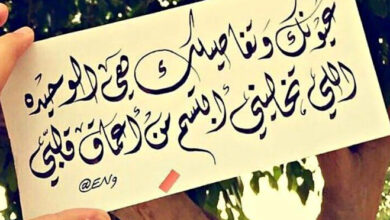 عيونك وتفاصيلك هي الوحيده
اللي تخليني أبتسم من أعماق قلبي
@EN9